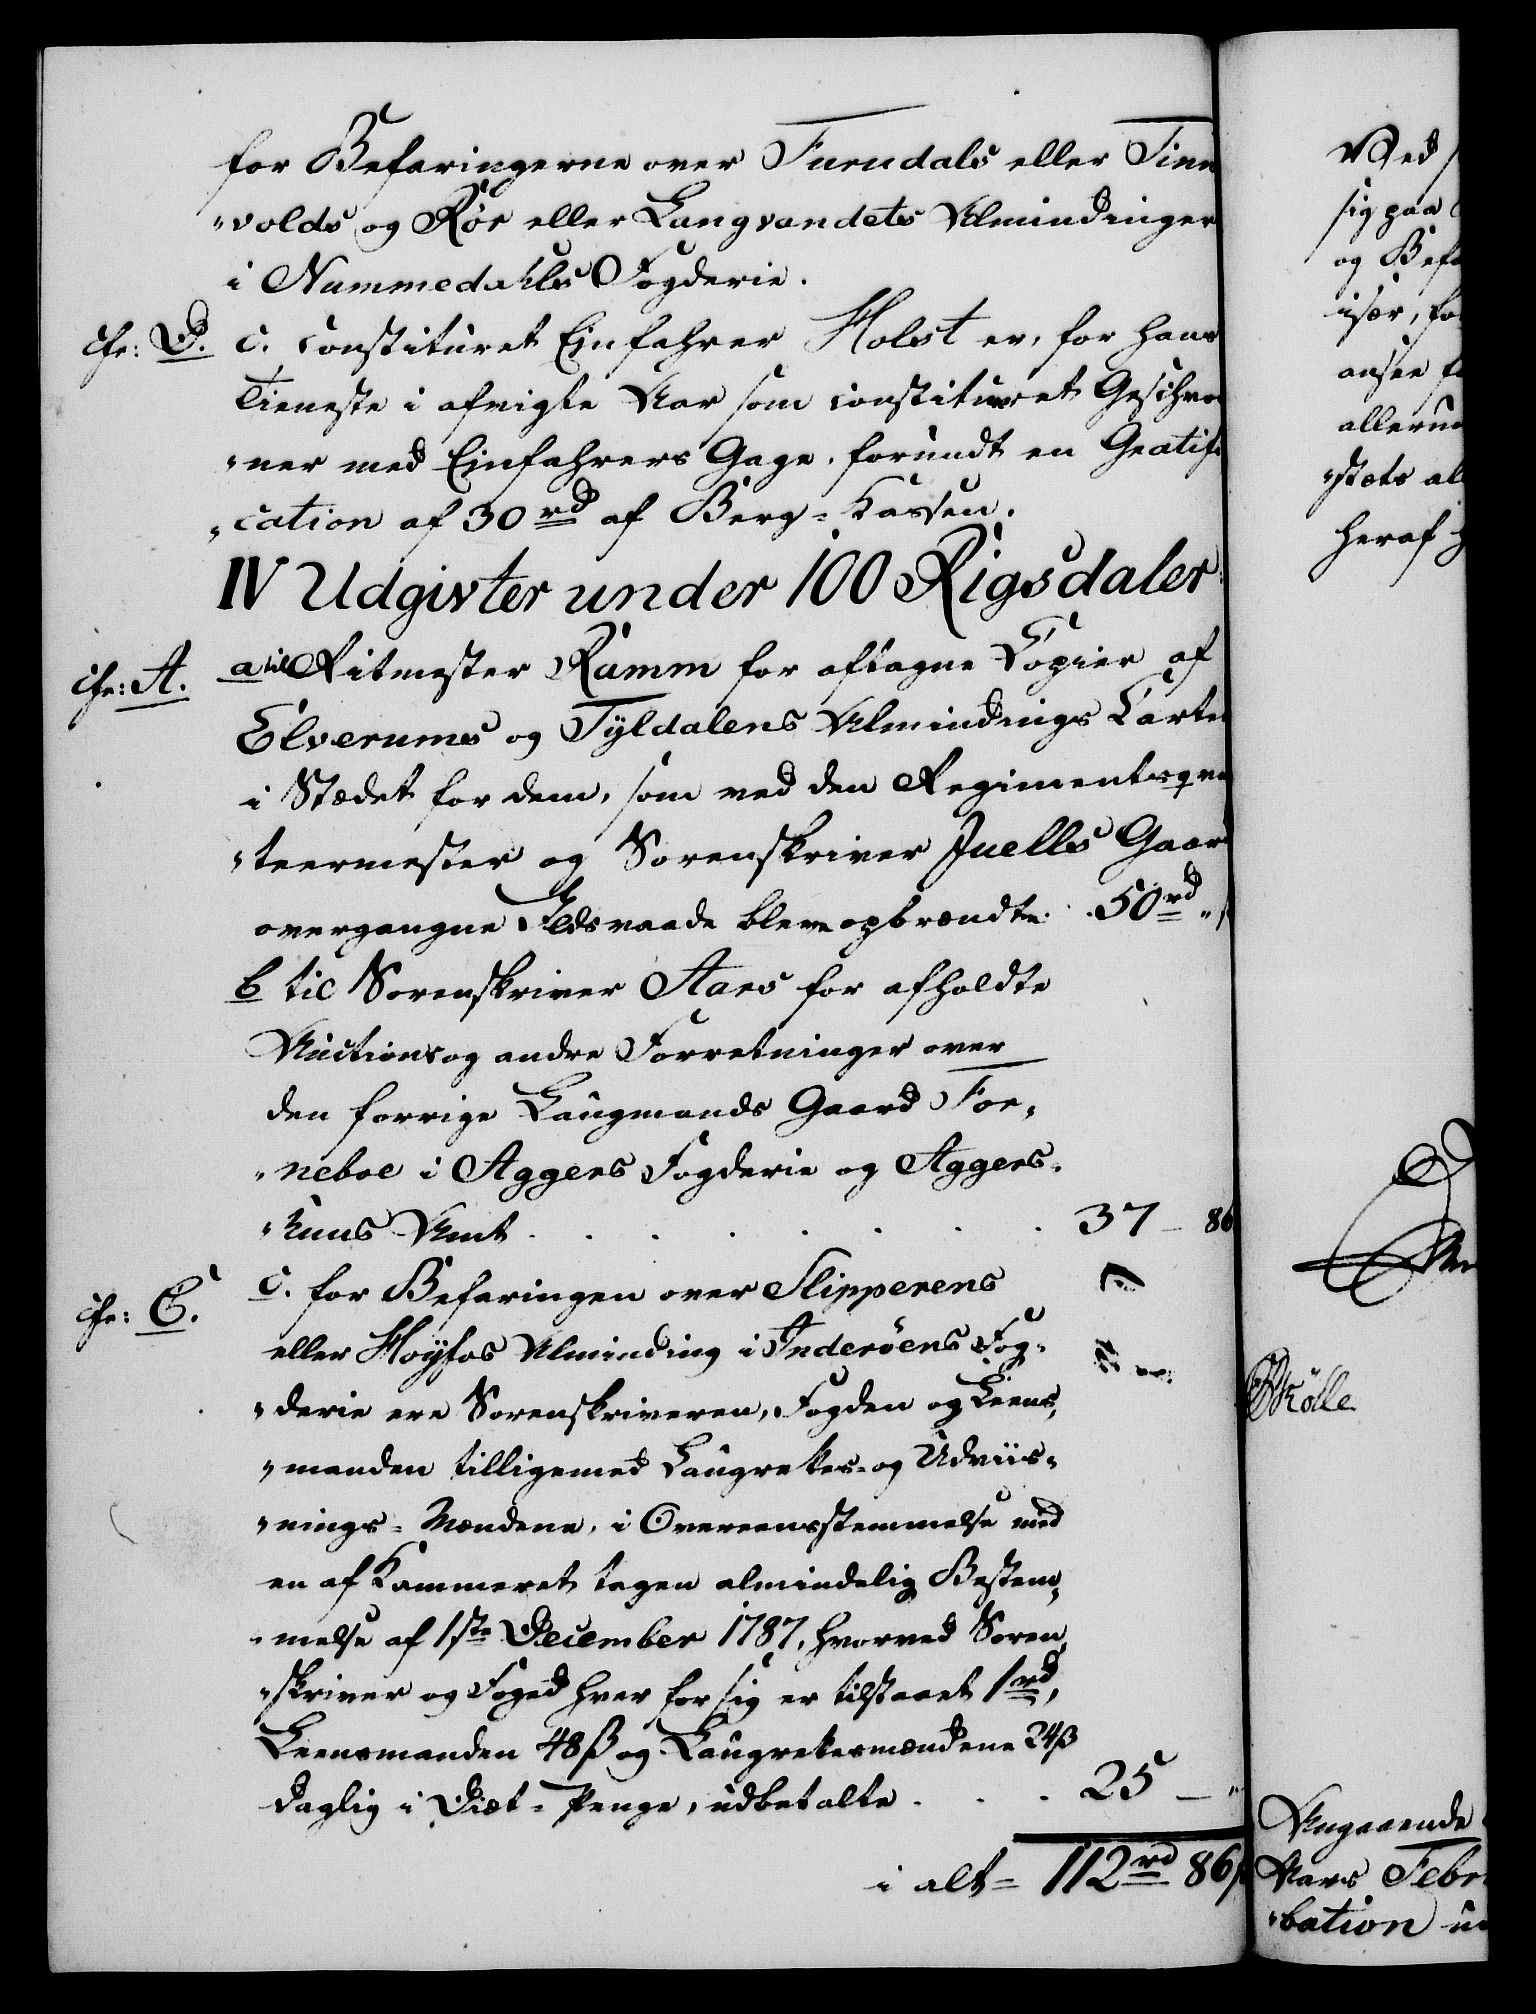 for Befaringerne over Furudals eller Finn
"volds og Röe eller Langvandets Almindinger
i Nummedahls Fogderie.
cfr: D. c. constitueret Einfahrer Holst er, for hans
Tieneste i afvigte Aar som constitueret Geschvor
"ner med Einfahrers Gage, forundt en Gratifi
"cation af 30 rd af Berg-Kassen.
IV Udgivter under 100 Rigsdaler:
cfr: A. a til Ritmester Ramm for aftagne Copier af
Elverums og Tÿldalens Almindings Carter
i Stædet for dem, som ved den Regimentsqvar
"teermester og Sorenskriver Juells Gaard
overgangne Ildsvaade bleve opbrændte. . 50 rd "
b til Sorenskriver Aars for afholdte
Auctions og andre Forretninger over
den forrige Laugmands Gaard For-
"neboe i Aggers Fogderie og Aggers-
"huus Amt . . . . . . . . 37 - 86
cfr: C. c. for Befaringen over Slipperens
eller Høÿfos Alminding i Inderöens Fog-
"derie ere Sorenskriveren, Fogden og Leens-
"manden tilligemed Laugrettes- og Udviis-
"nings-Mændene, i Overeensstemmelse med
en af Kammeret tagen almindelig Bestem-
"melse af 1ste December 1787, hvorved Soren-
"skriver og Foged hver for sig er tilstaaet 1 rd,
Leensmanden 48 ß og Laugrettesmændene 24 ß
daglig i Diæt-Penge, udbetalte . . . 25 - "
i alt = 112 rd 86 ß
Ved
sig paa
og Befa
især, fo
ansee fo
allerun
"stets al
heraf
Skölle
Angaaende
Aars Febr
"bation u